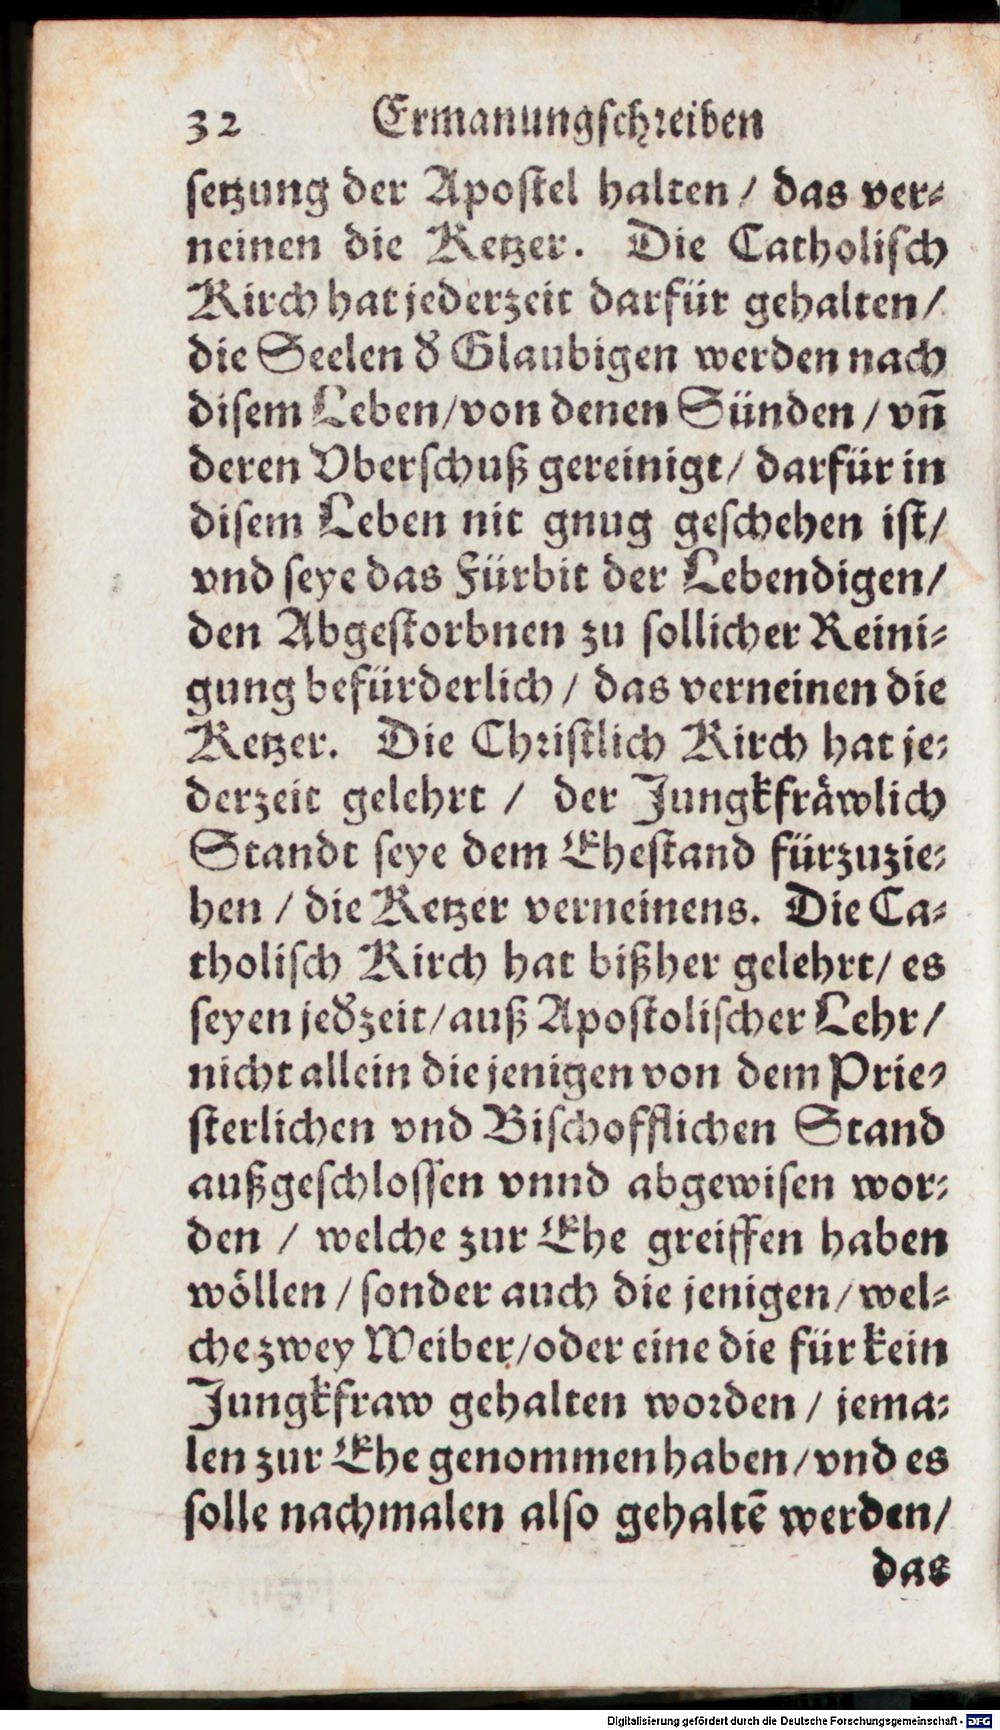 32 Ermanungschreiben
setzung der Apostel halten / das ver-
neinen die Ketzer. Die Catholisch
Kirch hat jederzeit darfür gehalten /
die Seelen đ Glaubigen werden nach
disem Leben / von denen Sünden / vñ
deren Vberschuß gereinigt / darfür in
disem Leben nit gnug geschehen ist /
vnd seye das Fürbit der Lebendigen /
den Abgestorbnen zu sollicher Reini-
gung befürderlich / das verneinen die
Ketzer. Die Christlich Kirch hat je-
derzeit gelehrt / der Jungkfraͤwlich
Standt seye dem Ehestand fürzuzie-
hen / die Ketzer verneinens. Die Ca-
tholisch Kirch hat bißher gelehrt / es
seyen jeđzeit / auß Apostolischer Lehr /
nicht allein die jenigen von dem Prie-
sterlichen vnd Bischofflichen Stand
außgeschlossen vnnd abgewisen wor-
den / welche zur Ehe greiffen haben
woͤllen / sonder auch die jenigen / wel-
che zwey Weiber / oder eine die für kein
Jungkfraw gehalten worden / jema-
len zur Ehe genommen haben / vnd es
solle nachmalen also gehaltē werden /
das
Digitalisierung gefördert durch die Deutsche Forschungsgemeinschaft - DFG